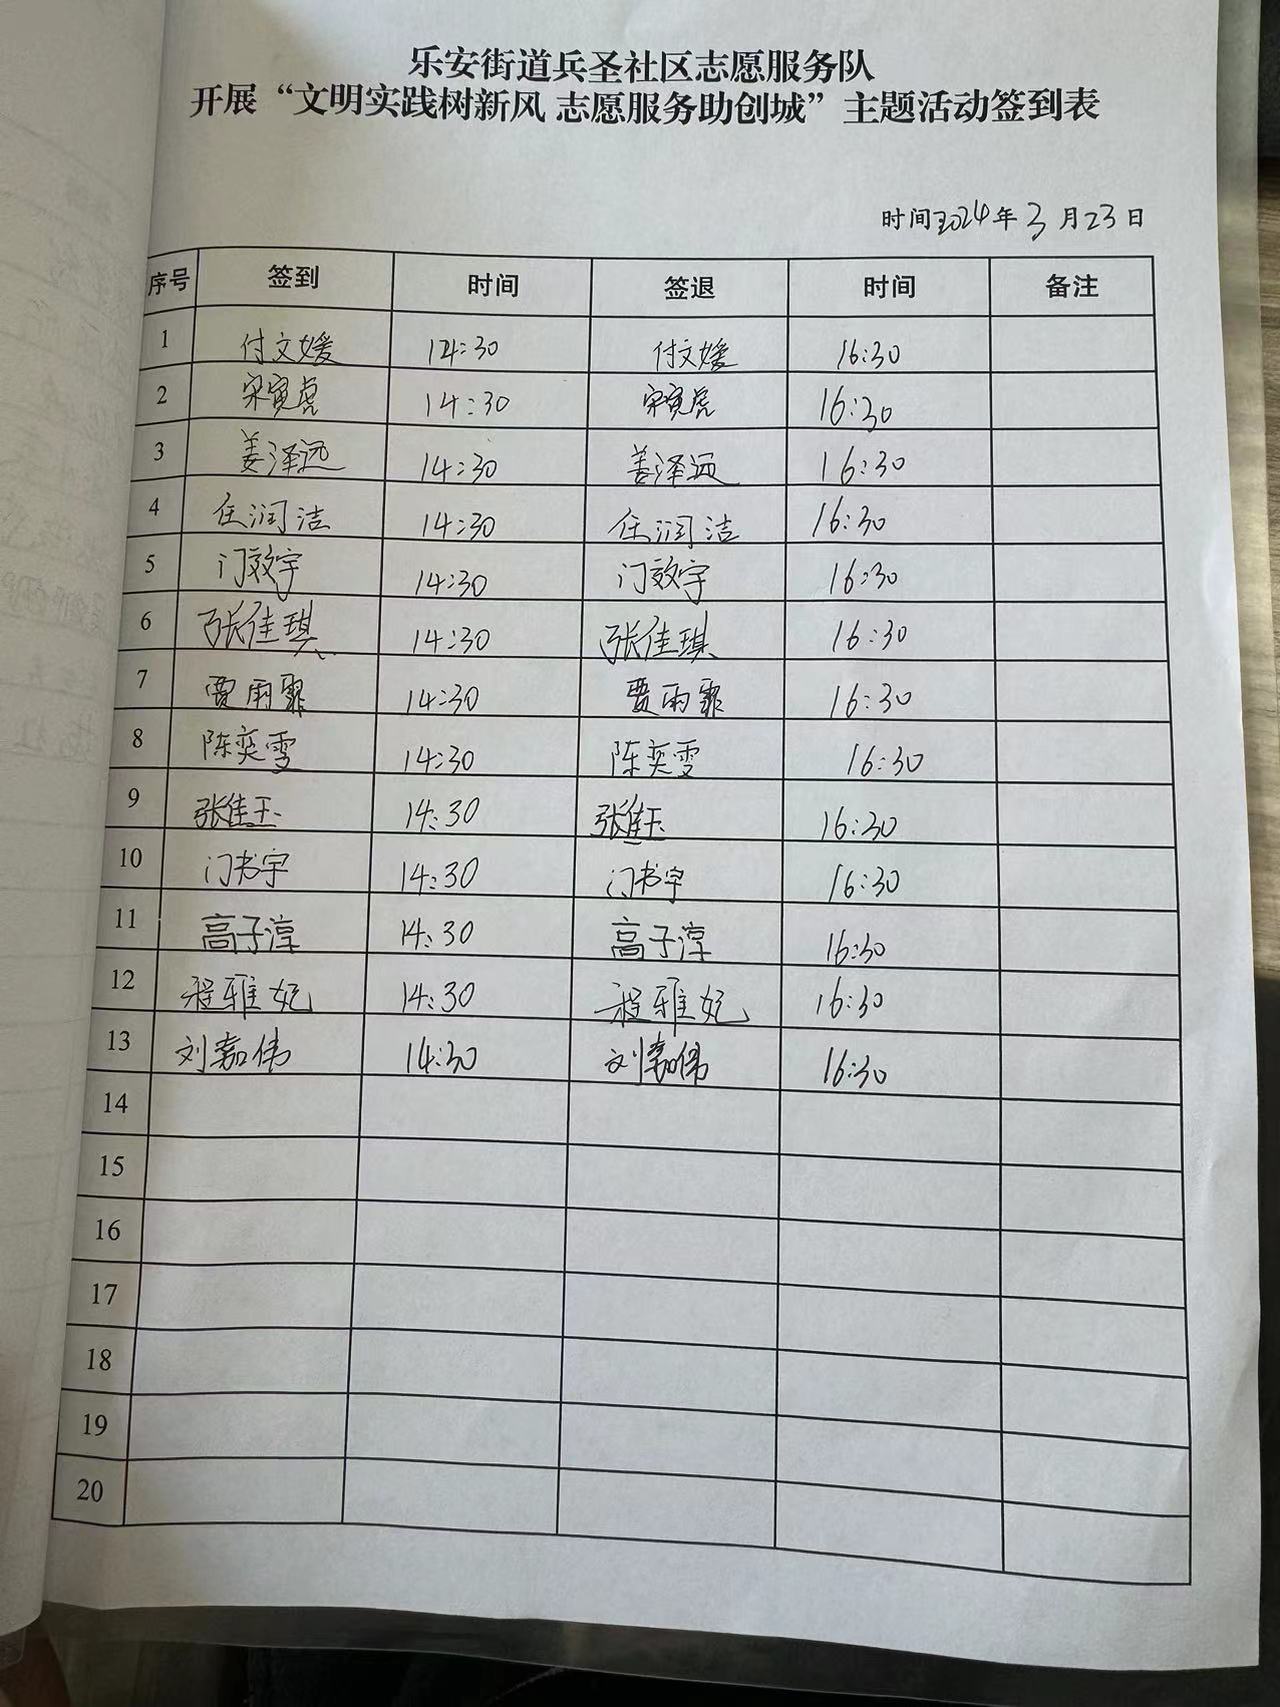 乐安街道兵圣社区志愿服务队
开展“文明实践树新风 志愿服务助创城”主题活动签到表
时间2024年3月23日
序号 签到 时间 签退 时间 备注
1 付文媛 14:30 付文媛 16:30
2 宋寅虎 14:30 宋寅虎 16:30
3 姜泽远 14:30 姜泽远 16:30
4 任润洁 14:30 任润洁 16:30
5 门效宇 14:30 门效宇 16:30
6 张佳琪 14:30 张佳琪 16:30
7 贾雨霏 14:30 贾雨霏 16:30
8 陈奕雯 14:30 陈奕雯 16:30
9 张佳玉 14:30 张佳玉 16:30
10 门书宇 14:30 门书宇 16:30
11 高子淳 14:30 高子淳 16:30
12 程雅妃 14:30 程雅妃 16:30
13 刘嘉伟 14:30 刘嘉伟 16:30
14
15
16
17
18
19
20